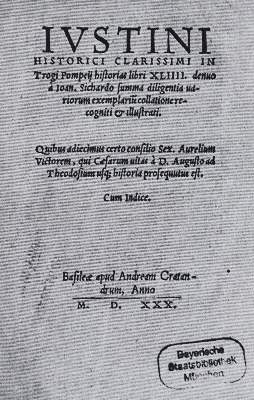 IVSTINI
HISTORICI CLARISSIMI IN
Trogi Pompeij historias libri XLIIII. denuo
à Ioan. Sichardo summa diligentia ua-
riorum exemplariũ collatione re-
cogniti & illustrati.
Quibus adiecimus certo consilio Sex. Aurelium
Victorem, qui Cæsarum uitas à D. Augusto ad
Theodosium usq; historia prosequutus est.
Cum Indice.
Basileæ apud Andream Cratan-
drum, Anno
M. D. XXX.
Bayerische
Staatsbibliothek
München